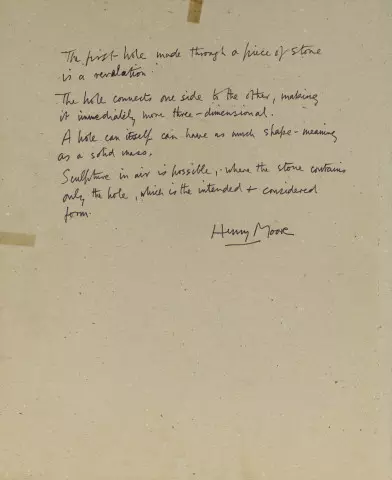 The first hole made through a piece of stone
is a revelation.
The hole connects one side to the other, making
it immediately more three-dimensional.
A hole can itself can have as much shape-meaning
as a solid mass.
Sculpture in air is possible, where the stone contains
only the hole, which is the intended + considered
form.
Henry Moore